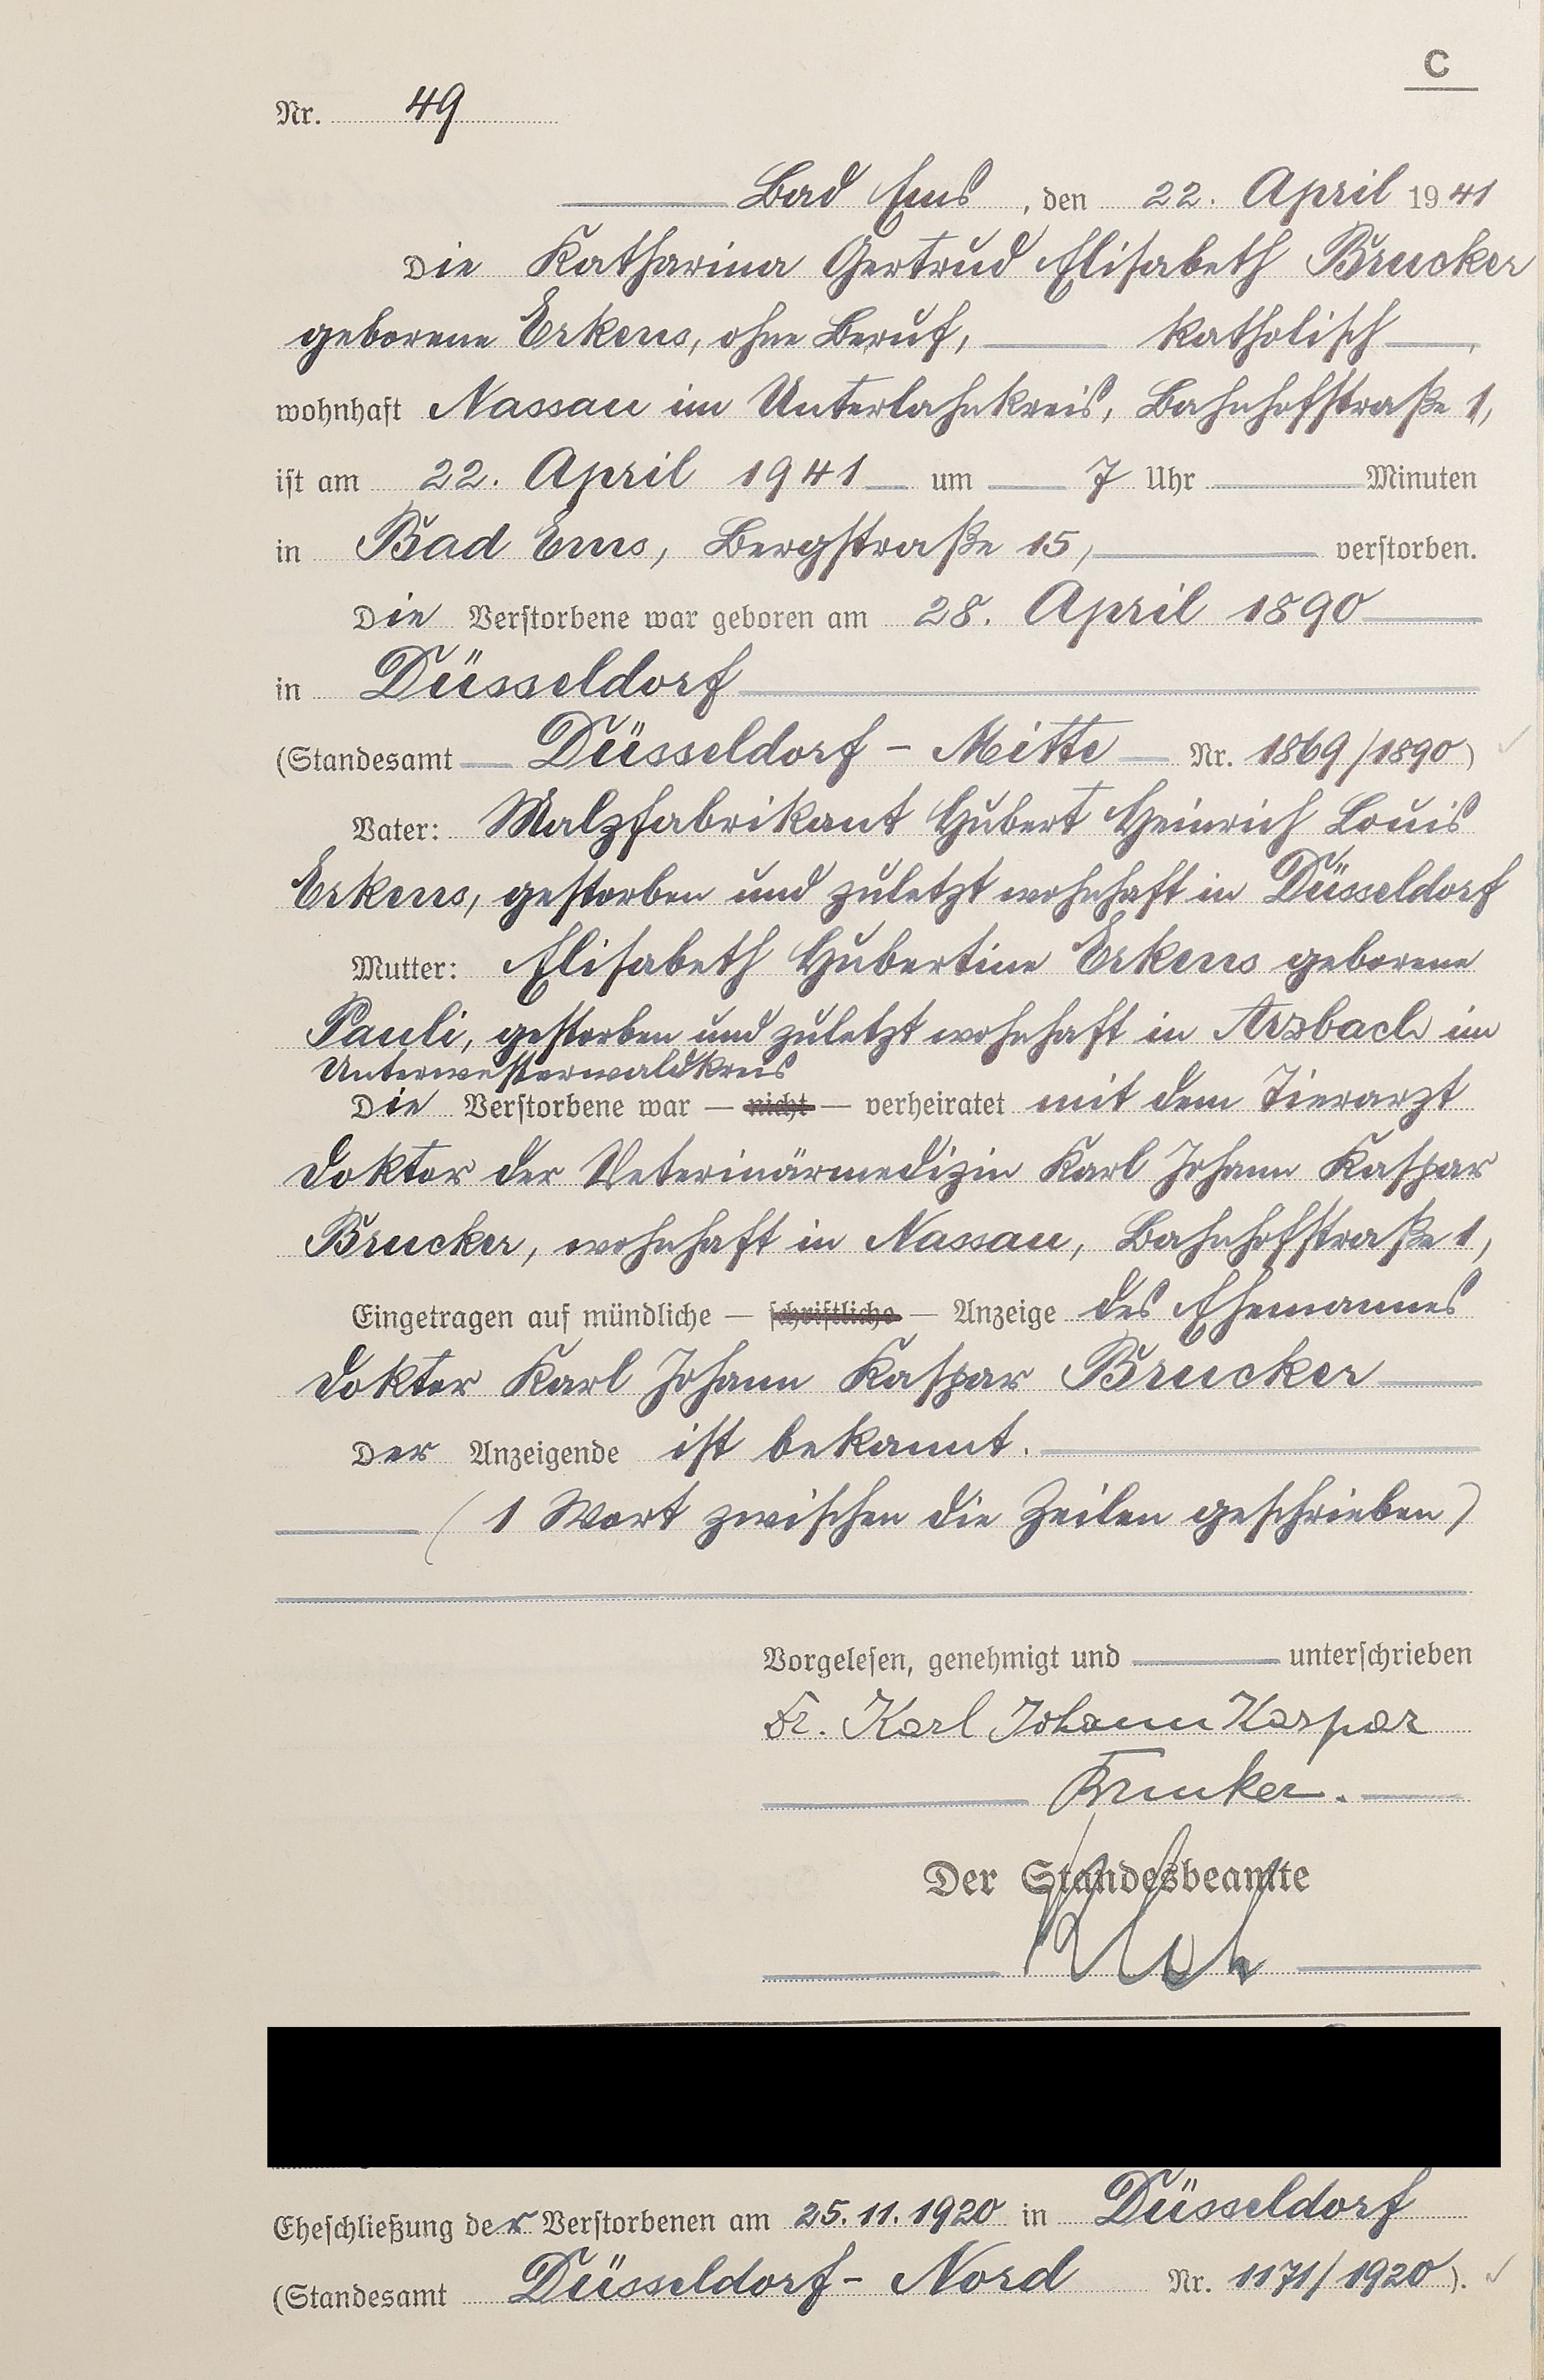 C
Nr. 49
Bad Ems, den 22. April 1941
Die Katharina Gertrud Elisabeth Brucker
geborene Erkens, ohne Beruf, katholisch,
wohnhaft Nassau im Unterlahnkreis, Bahnhofstraße 1,
ist am 22. April 1941 um 7 Uhr Minuten
in Bad Ems, Bergstraße 15, verstorben.
Die Verstorbene war geboren am 28. April 1890
in Düsseldorf
(Standesamt Düsseldorf - Mitte Nr. 1869/1890)
Vater: Malzfabrikant Hubert Heinrich Louis
Erkens, gestorben und zuletzt wohnhaft in Düsseldorf
Mutter: Elisabeth Hubertine Erkens geborene
Pauli, gestorben und zuletzt wohnhaft in Arzbach im
Unterwesterwaldkreis
Die Verstorbene war — nicht — verheiratet mit dem Tierarzt
Doktor der Veterinärmedizin Karl Johann Kaspar
Brucker, wohnhaft in Nassau, Bahnhofstraße 1,
Eingetragen auf mündliche — schriftliche — Anzeige des Ehemannes
Doktor Karl Johann Kaspar Brucker
Der Anzeigende ist bekannt.
(1 Wort zwischen die Zeilen geschrieben)
Vorgelesen, genehmigt und unterschrieben
Dr. Karl Johann Kaspar
Brucker.
Der Standesbeamte
Eheschließung der Verstorbenen am 25.11.1920 in Düsseldorf
(Standesamt Düsseldorf - Nord Nr. 1171/1920).